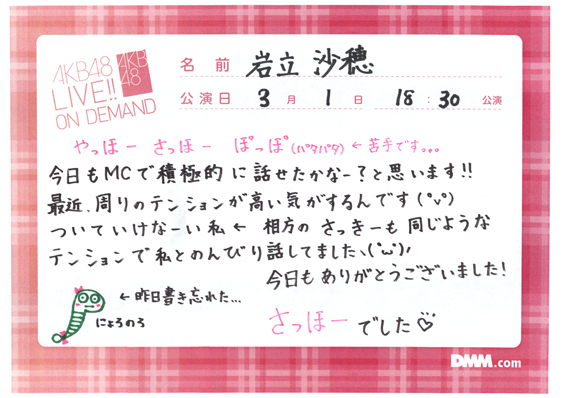 AKB48
LIVE!!
ON DEMAND
AKB
48
名前 岩立 沙穂
公演日 3月 1日 18:30公演
やっほー さっほー ぽっぽ(パタパタ) ← 苦手です。。。
今日もMCで積極的に話せたかなー?と思います!!
最近、周りのテンションが高い気がするんです(°v°)
ついていけなーい私 ← 相方の さっきーも 同じような
テンションで私とのんびり話してました、(˙ω˙)、
今日も ありがとうございました!
←昨日書き忘れた…
にょろのろ
さっほー でした♡
DMM.com